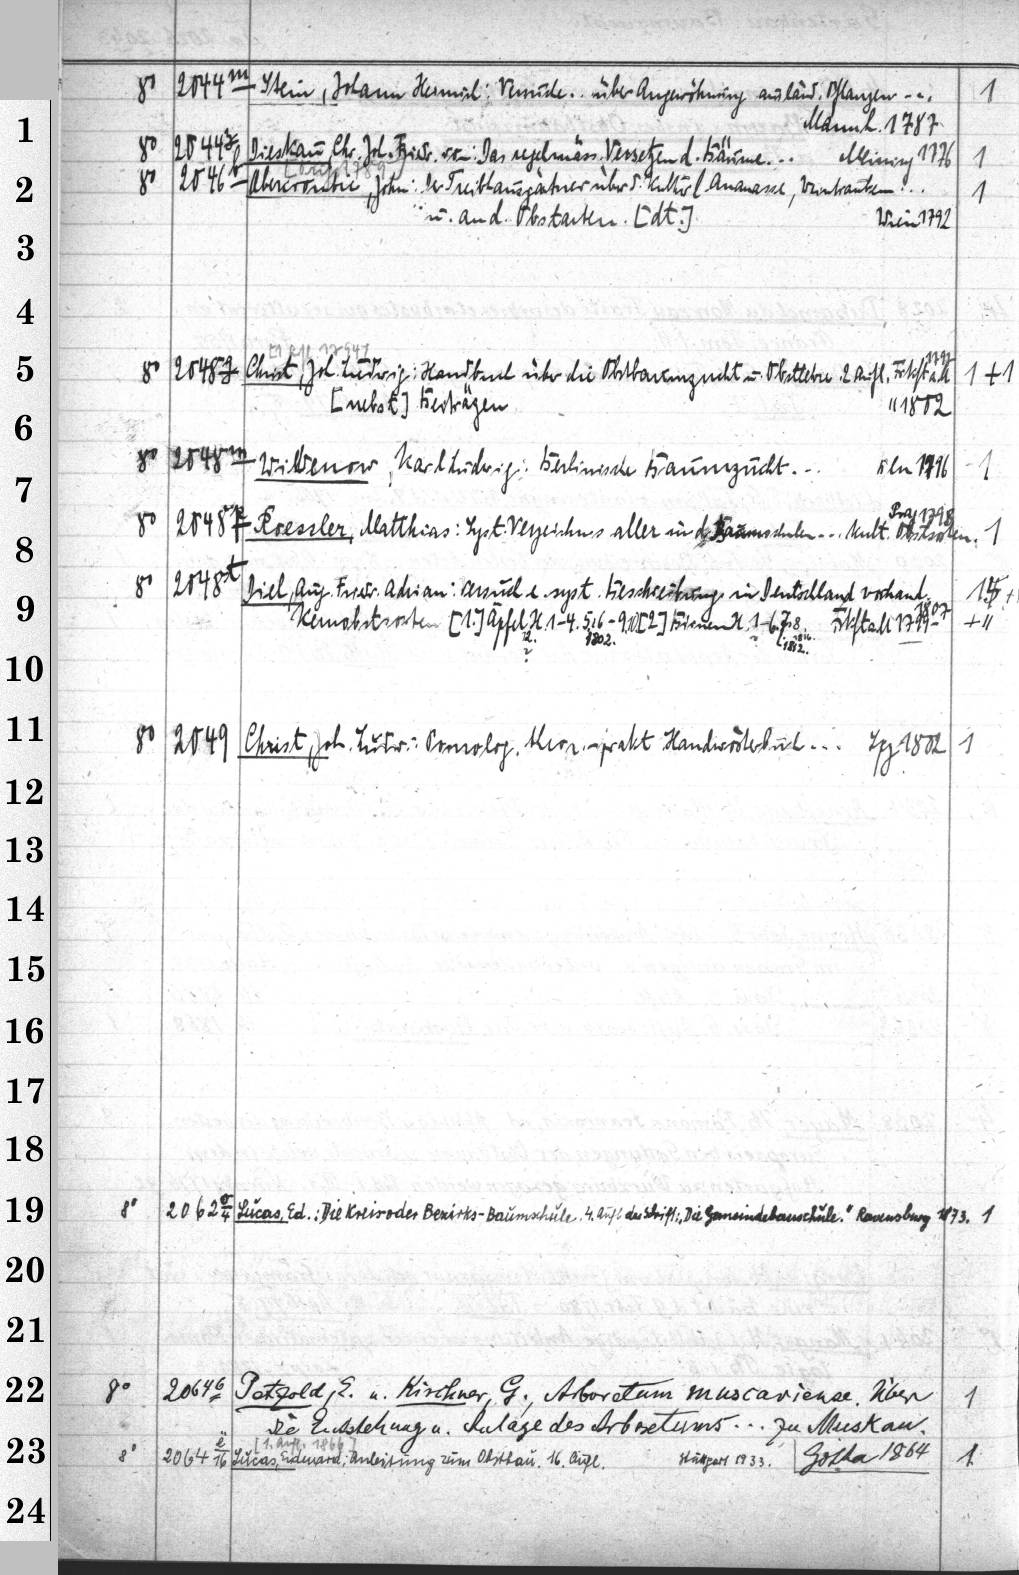 8° 2044 m Stein, Johann Heinrich: Versuche.. über Angewöhnung ausländ. Pflanzen ... 1
Mannh. 1787
1
8° 2044 Dieskau, Chr. Joh. Friedr. von: Das regelmäss. Versetzen d. Bäume... Meining 1776 1
2 8° 2046 b Abercrombie, John: Der Treibhausgärtner über d. Kultur d. Ananasse, Weintrauben ... 1
u. and. Obstarten. [dt.] Wien 1792
3
4
5 8° 2048 Christ, Joh. Ludwig: Handbuch über die Obstbaumzucht u. Obstlehre. 2. Aufl. Frkft a M 1797 1 + 1
[nebst] Beiträgen " 1802
6
8° 2048 m Willdenow, Karl Ludwig: Berlinische Baumzucht... Bln 1796 1
7
Prag 1798
8° 2048 Roessler, Matthias: Syst. Verzeichnis aller in d. Baumschulen... kult. Obstsorten. 1
8
8° 2048 st Diel, Aug. Friedr. Adrian: Versuch e. syst. Beschreibung in Deutschland vorhand.
9 Kernobstsorten [1.] Äpfel H. 1-4. 5. 6 - 9. 10 [2] Birnen H. 1-6. 7. 8. Frkft a M 1799- 1807
1802. 1812. 1816.
10
11 8° 2049 Christ, Joh. Ludw.: Pomolog. theor.-prakt. Handwörterbuch... Lpz 1802 1
12
13
14
15
16
17
18
19 8° 2062 Lucas, Ed.: Die Kreis- oder Bezirks-Baumschule. 4. Aufl der Schrift: „Die Gemeindebaumschule." Ravensburg 1873. 1
20
21
22 8° 2064 b Petzold, E. u. Kirchner, G.: Arboretum muscaviense. Über 1
die Entstehung u. Anlage des Arboretums... zu Muskau.
[1. Aufl. 1866] Gotha 1864
23 8° 2064 e/16 Lucas, Eduard: Anleitung zum Obstbau. 16. Aufl. Stuttgart 1933. 1
24